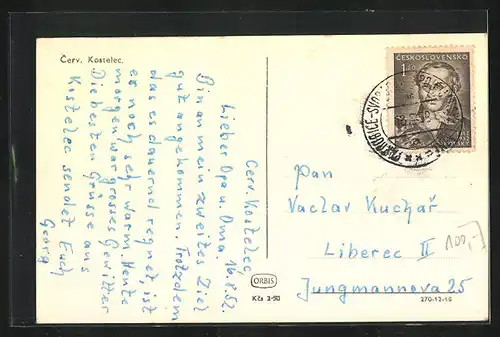 Červ. Kostelec.
Cerv. Kostelec, 16.8.52.
Lieber Opa u. Oma.
Bin an mein zweites Ziel
gut angekommen. Trotzdem
das es dauernd regnet, ist
es noch sehr warm. Heute
morgen war grosses Gewitter
Die besten Grüsse aus
Kostelec sendet Euch
Georg
ČESKOSLOVENSKO
1,40
Pan
Vaclav Kuchař
Liberec II
Jungmannova 25
100,-
ORBIS
Kčs 2·50
270-12-16